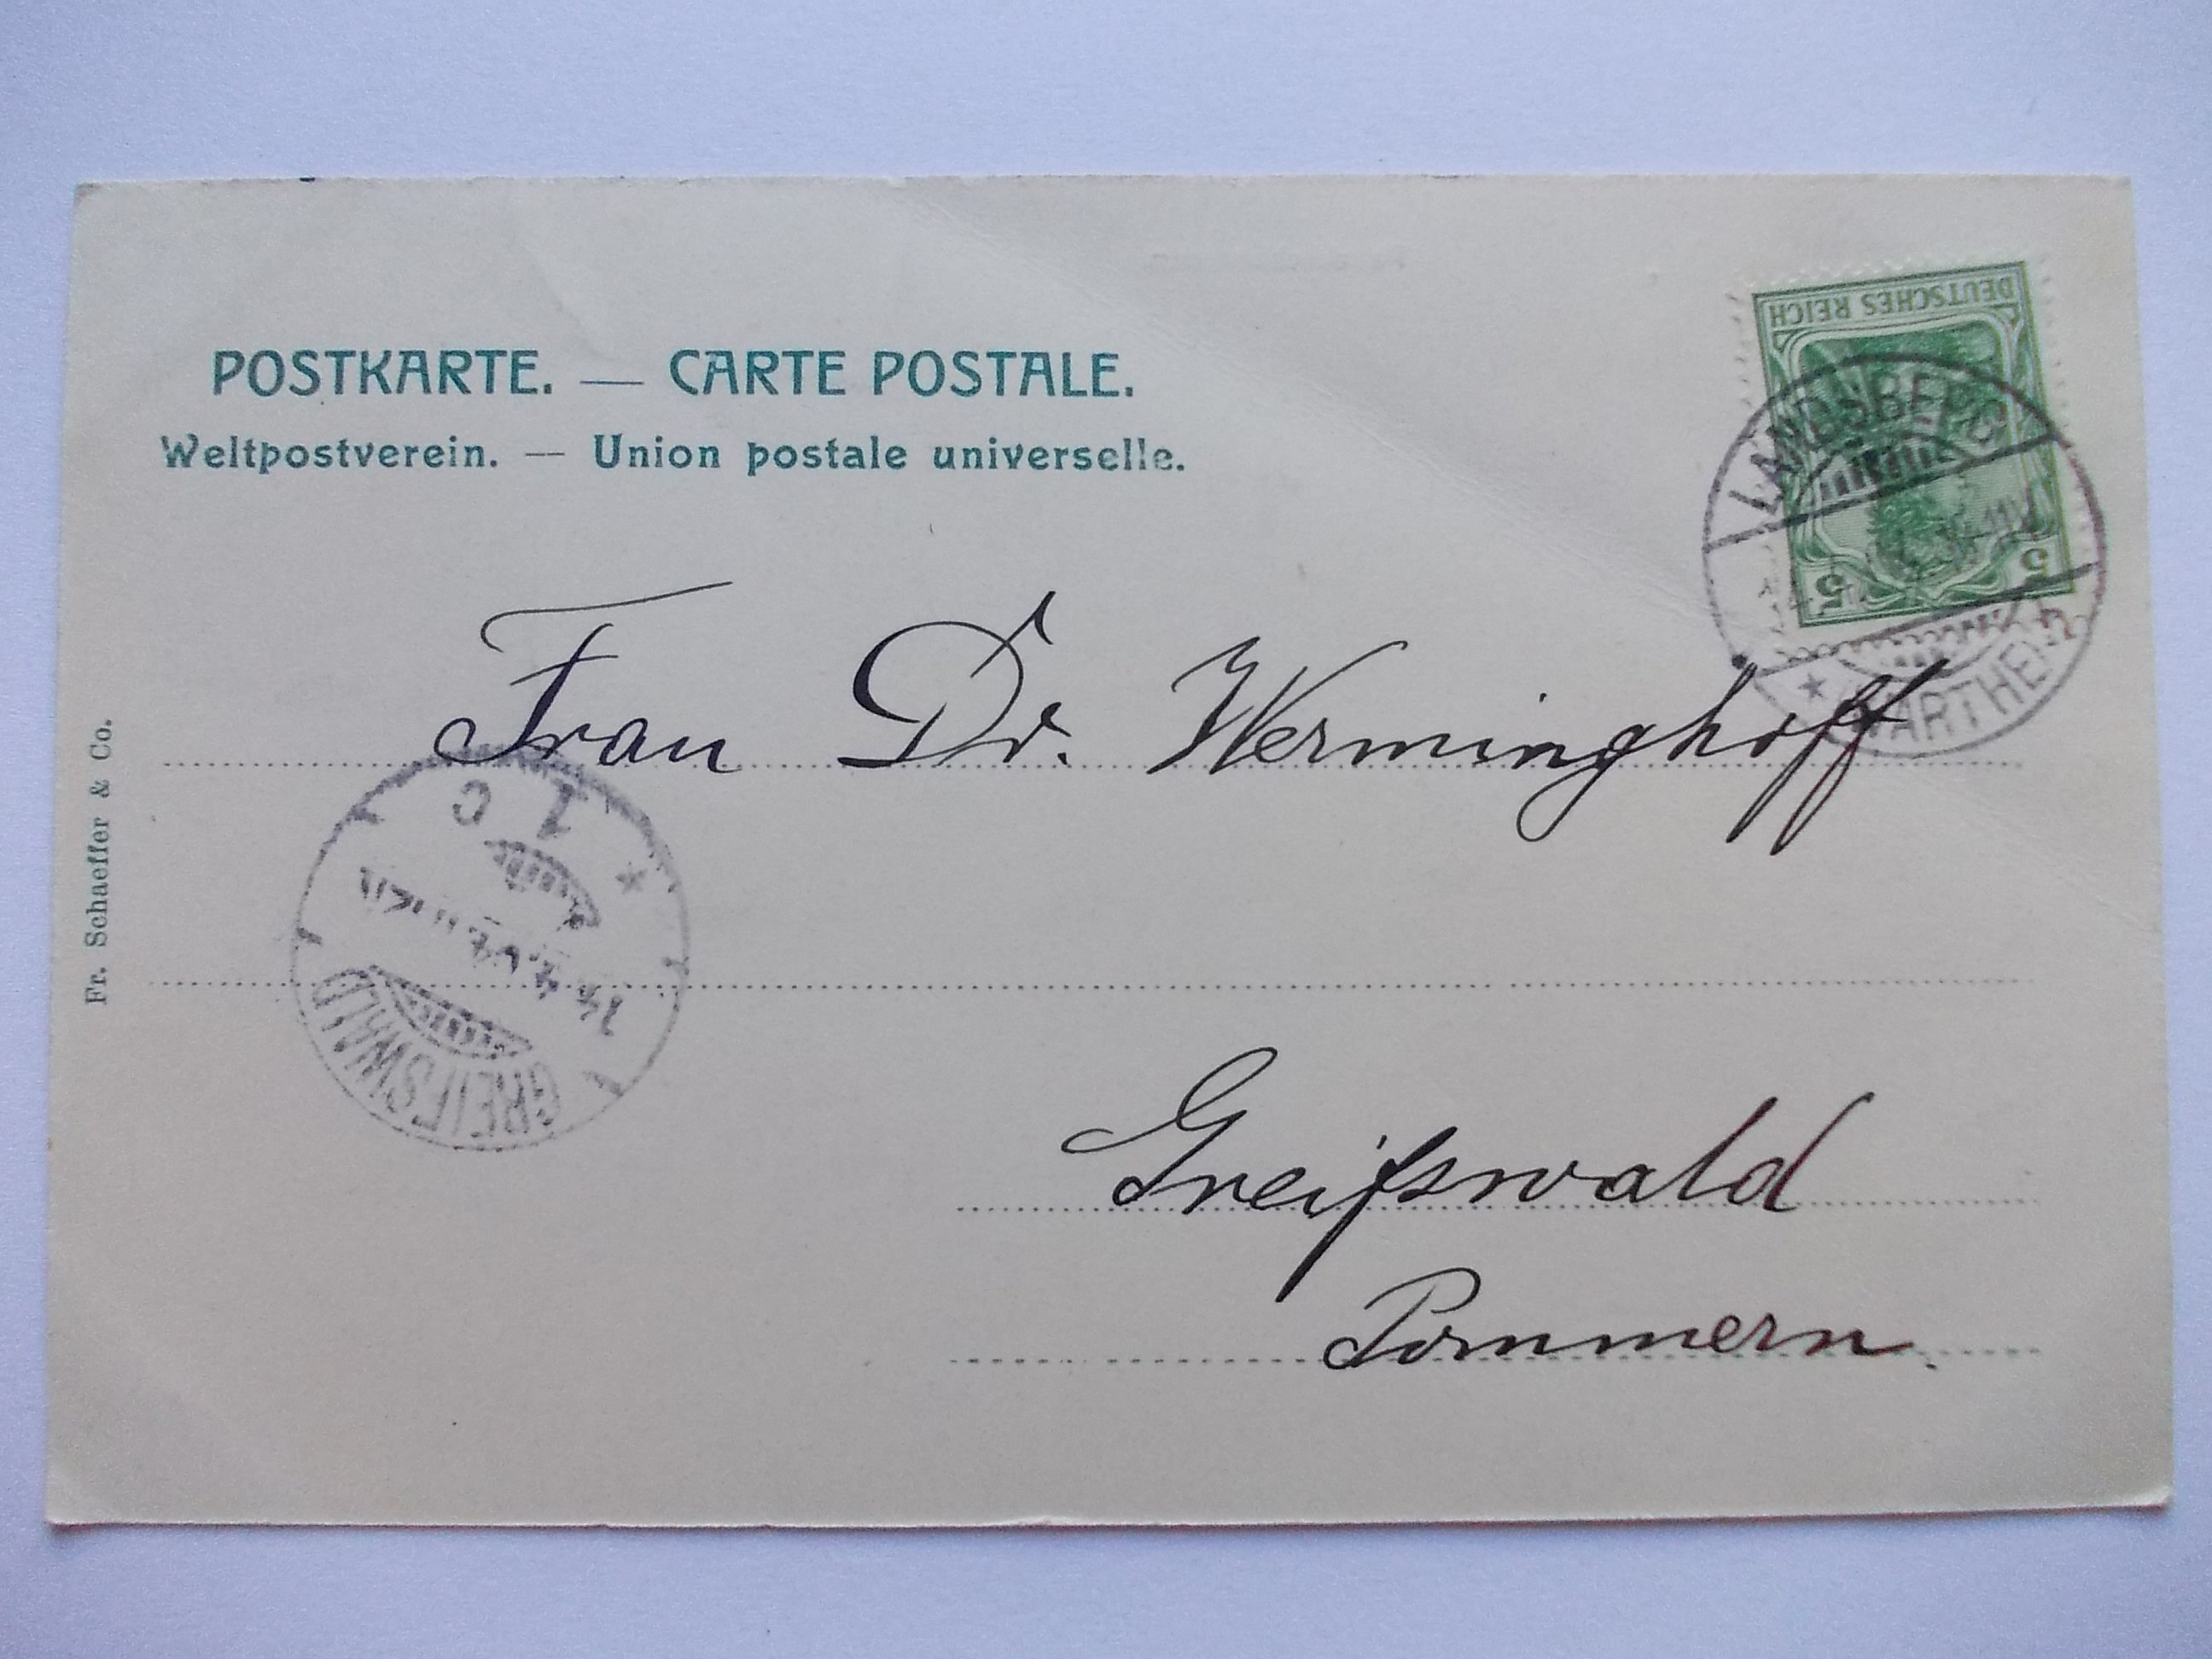 DEUTSCHES REICH
POSTKARTE. — CARTE POSTALE.
Weltpostverein. — Union postale universelle.
LANDSBERG
5 5
* WARTHE
Frau Dr. Werminghoff
1 C
*
GREIFSWALD
Fr. Schaeffer & Co.
Greifswald
Pommern.